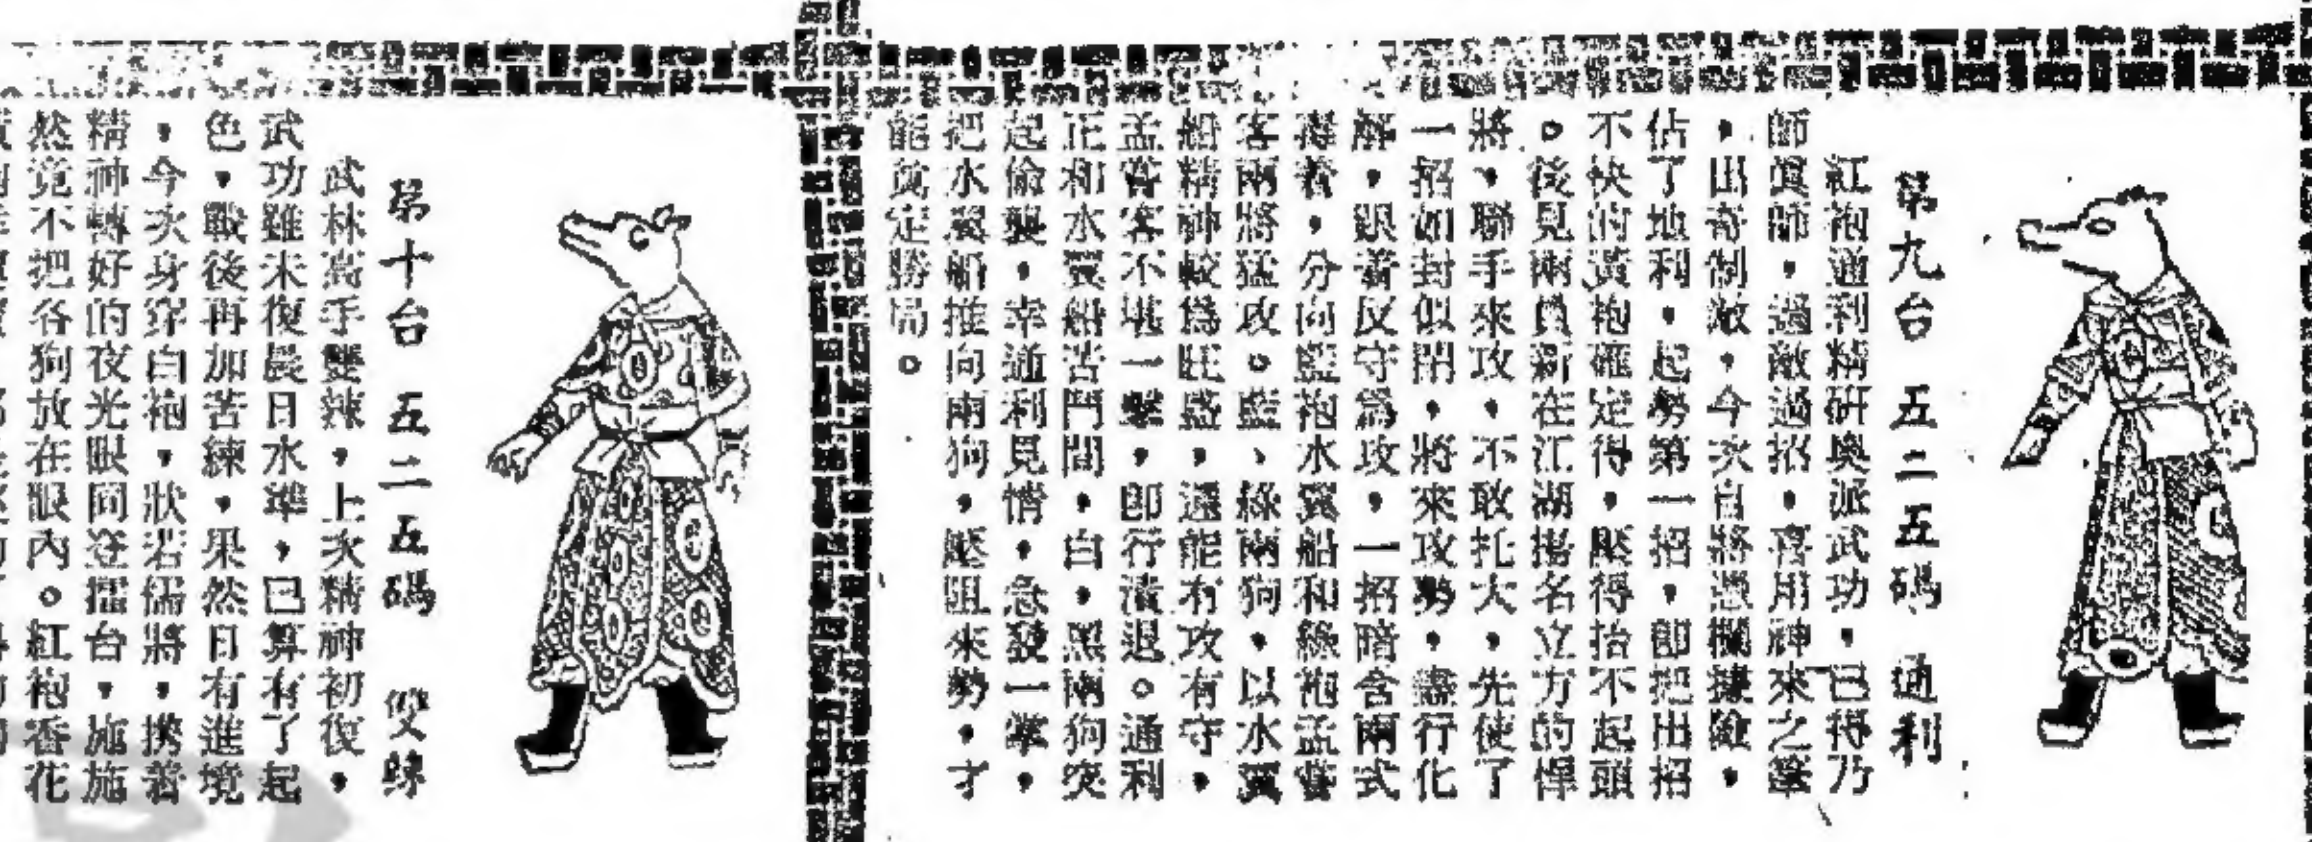 第九台 五二五碼 通利
紅袍通利精研奧派武功，已得乃
師眞師，過敵過招，喜用神來之筆
，出奇制敵，今次自將憑欄據敵，
佔了地利，起勢第一招，即把出招
不快的黃袍確定得，壓得抬不起頭
。後見兩員新在江湖揚名立力的悍
將，聯手來攻，不敢托大，先使了
一招如封似閉，將來攻勢，盡行化
解，跟着反守爲攻，一招暗含兩式
，分向藍袍水翼船和綠袍孟嘗
客兩將猛攻。藍、綠兩狗，以水翼
船精神較爲旺盛，還能有攻有守，
孟嘗客不堪一擊，即行潰退。通利
正和水翼船苦鬥間，白，黑兩狗突
起偷襲，幸通利見情，急發一掌，
把水翼船推向兩狗，壓阻來勢，才
能奠定勝局。
第十台 五二五碼 雙辣
武林高手雙辣，上次精神初復，
武功雖未復晨日水準，已算有了起
色，戰後再加苦練，果然日有進境
，今次身穿白袍，狀若儒將，携着
精神轉好的夜光眼同登擂台，施施
然竟不把各狗放在眼內。紅袍香花